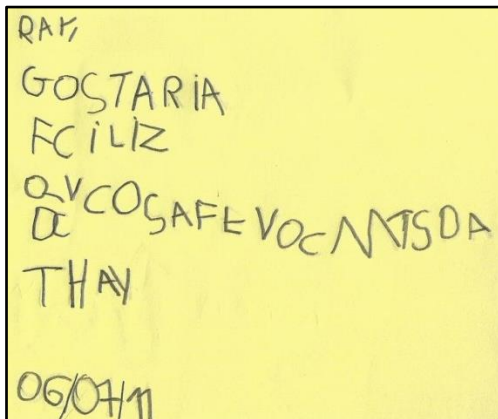 RAY,
GOSTARIA
FCILIZ
QVCOSAFEVOC
DC
THAY
06/07/11